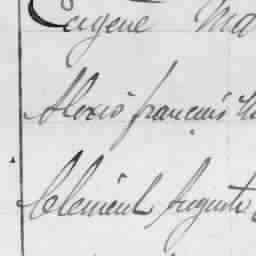 Eugène Ma
Alexis françois
Clément Auguste